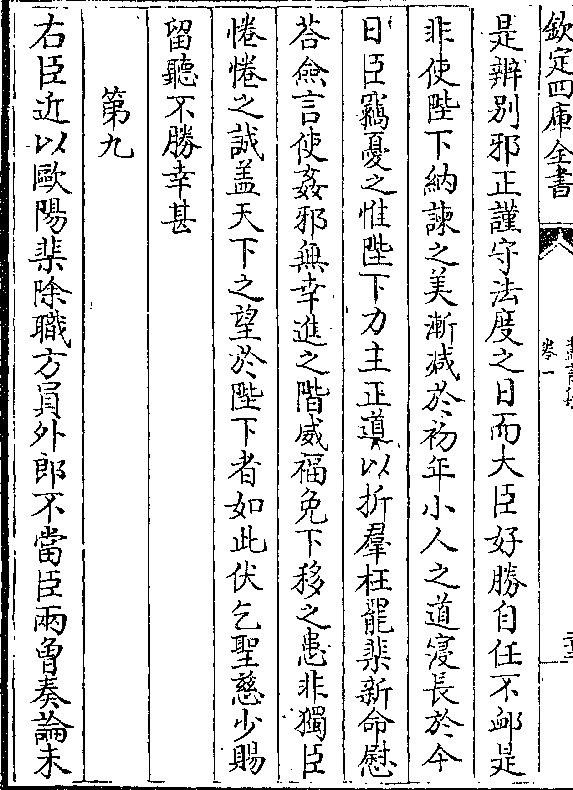 欽定四庫全書
卷一
是辨别邪正謹守法度之日而大臣好勝自任不卹是
非使陛下納諫之美漸減於初年小人之道寖長於今
日臣竊憂之惟陛下力主正道以折羣枉罷棐新命慰
荅僉言使姦邪無幸進之階威福免下移之患非獨臣
惓惓之誠盖天下之望於陛下者如此伏乞聖慈少賜
留聽不勝幸甚
第九
右臣近以歐陽棐除職方員外郎不當臣兩曾奏論未